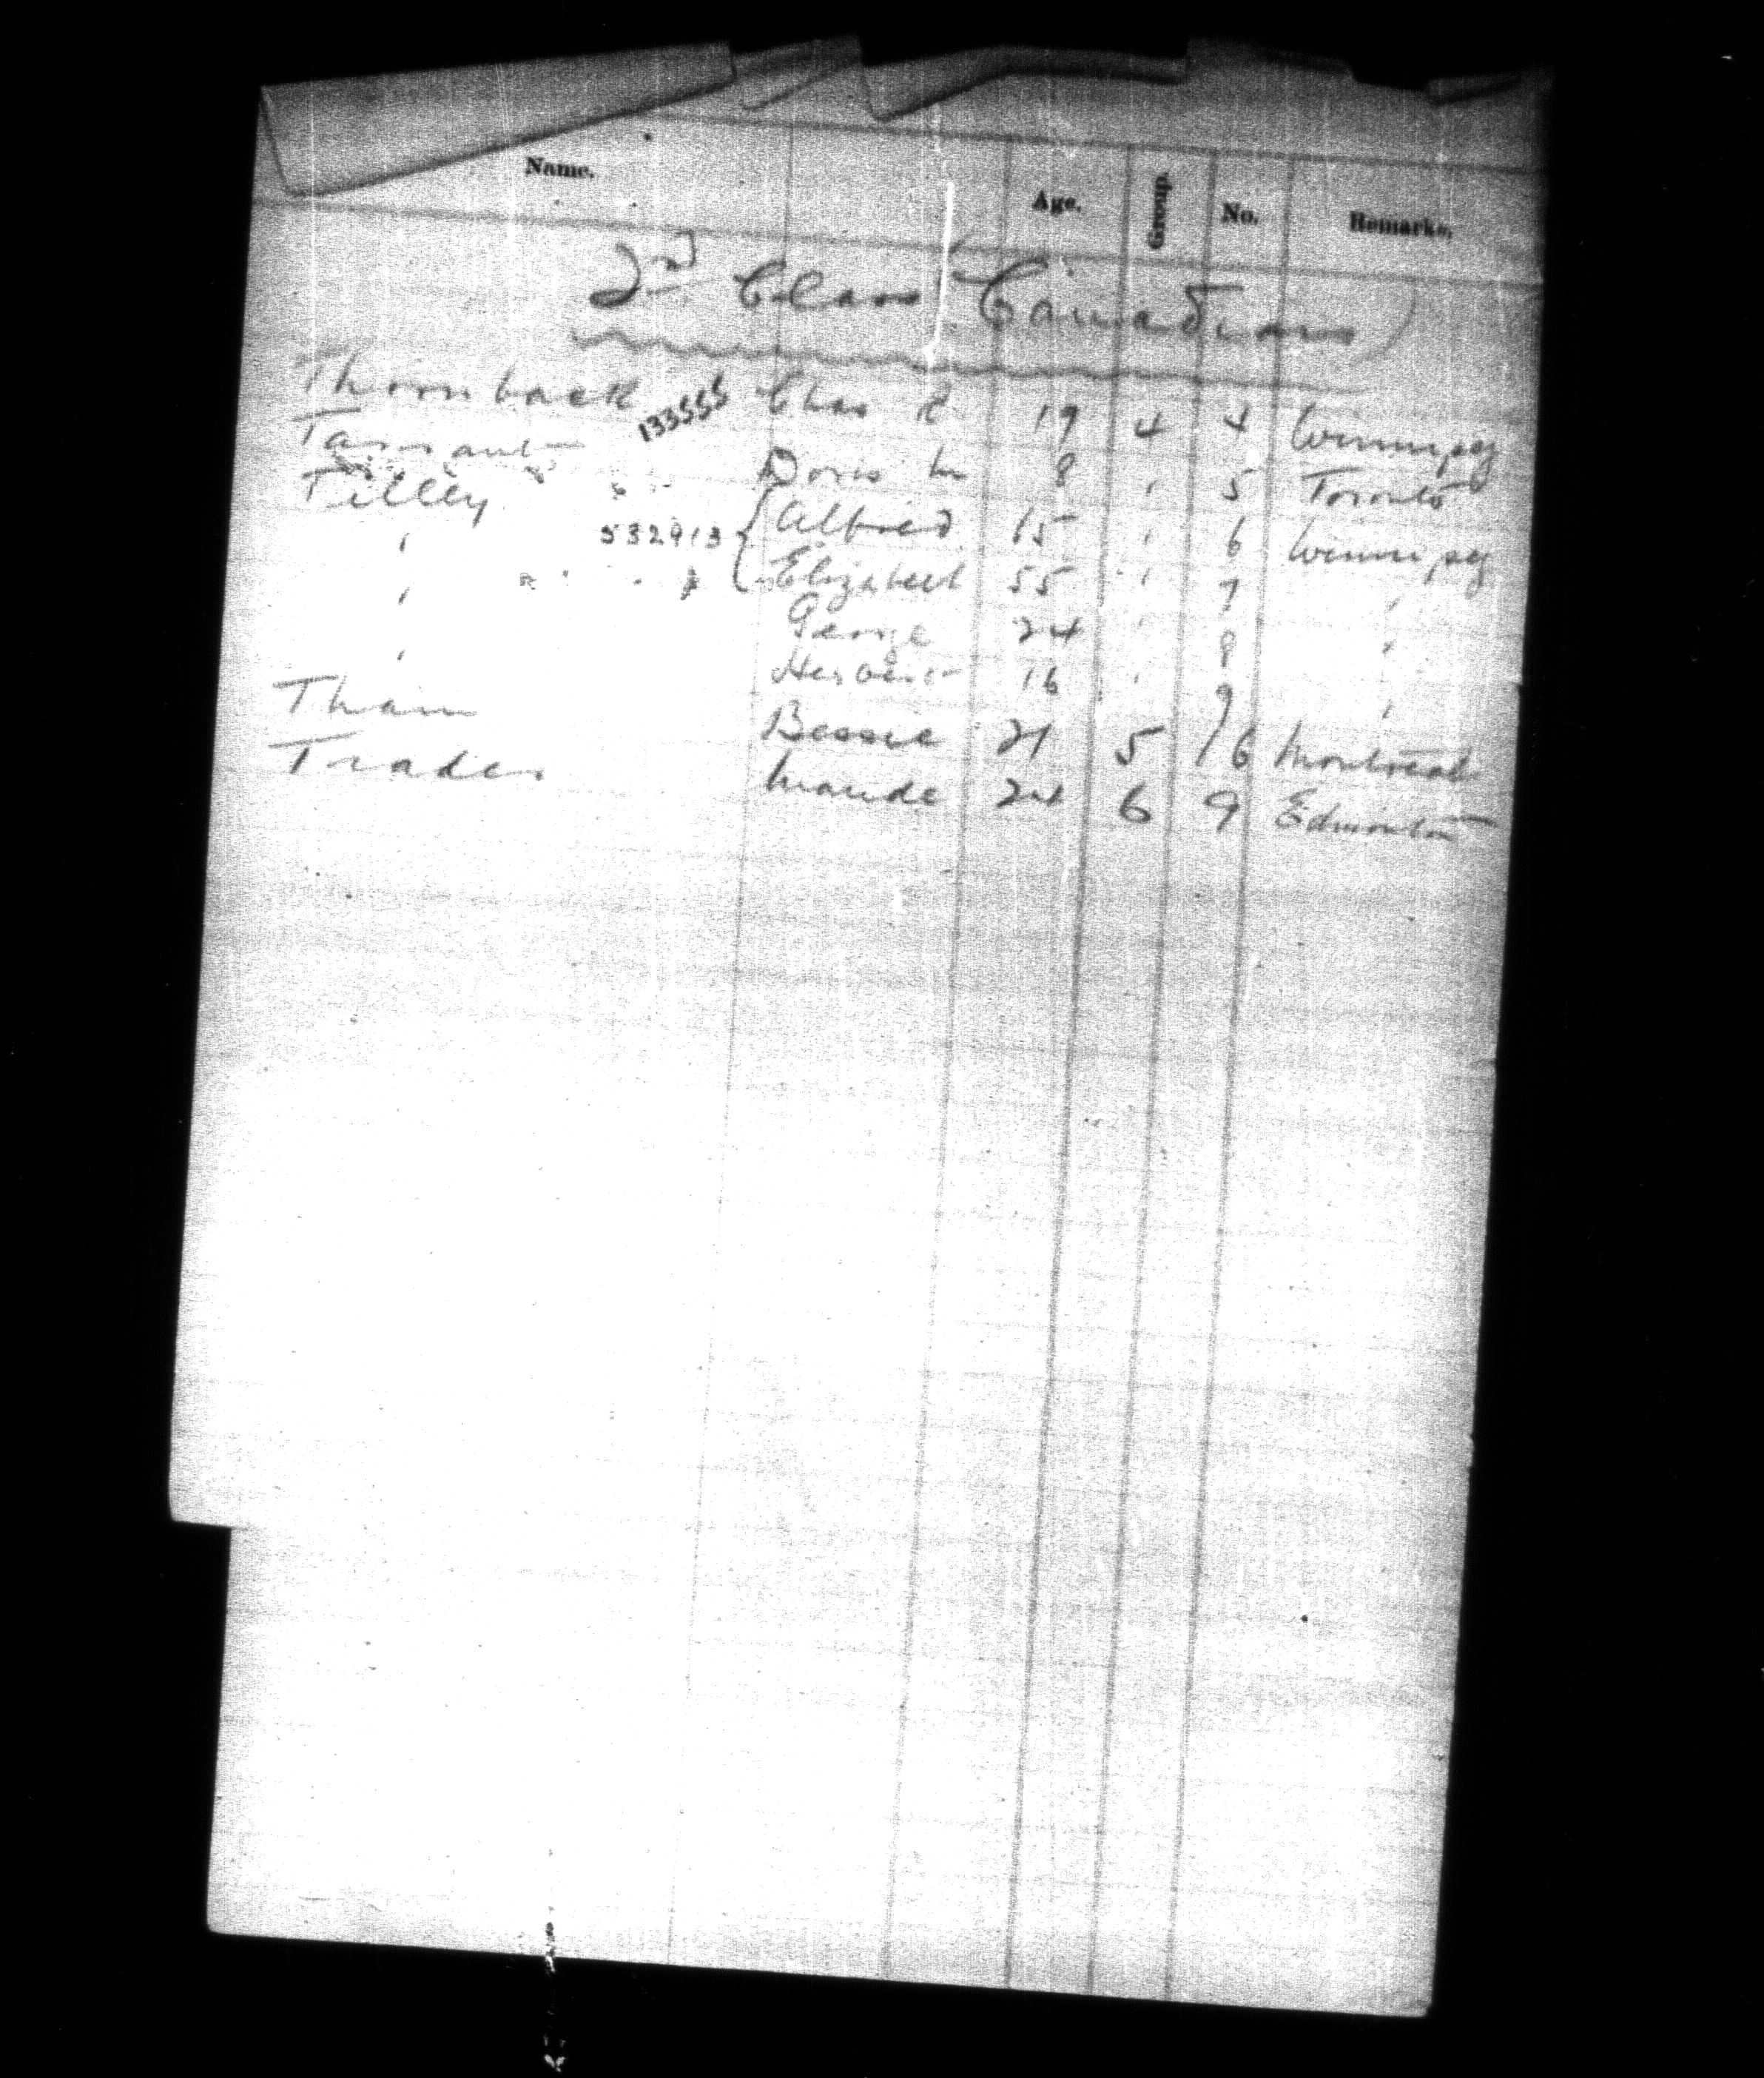 Name. Age. Group. No. Remarks.
2nd Class (Canadians)
Thornback 133555 Chas R 19 4 4 Winnipeg
Doris M 8 " 5 Toronto
Tilley Alfred 65 " 6 Winnipeg
" 532913 Elizabeth 55 " 7 "
" George 24 " 8 "
" Herbert 16 " 9 "
Tham Bessie 21 5 16 Montreal
Trader Maude 24 6 9 Edmonton